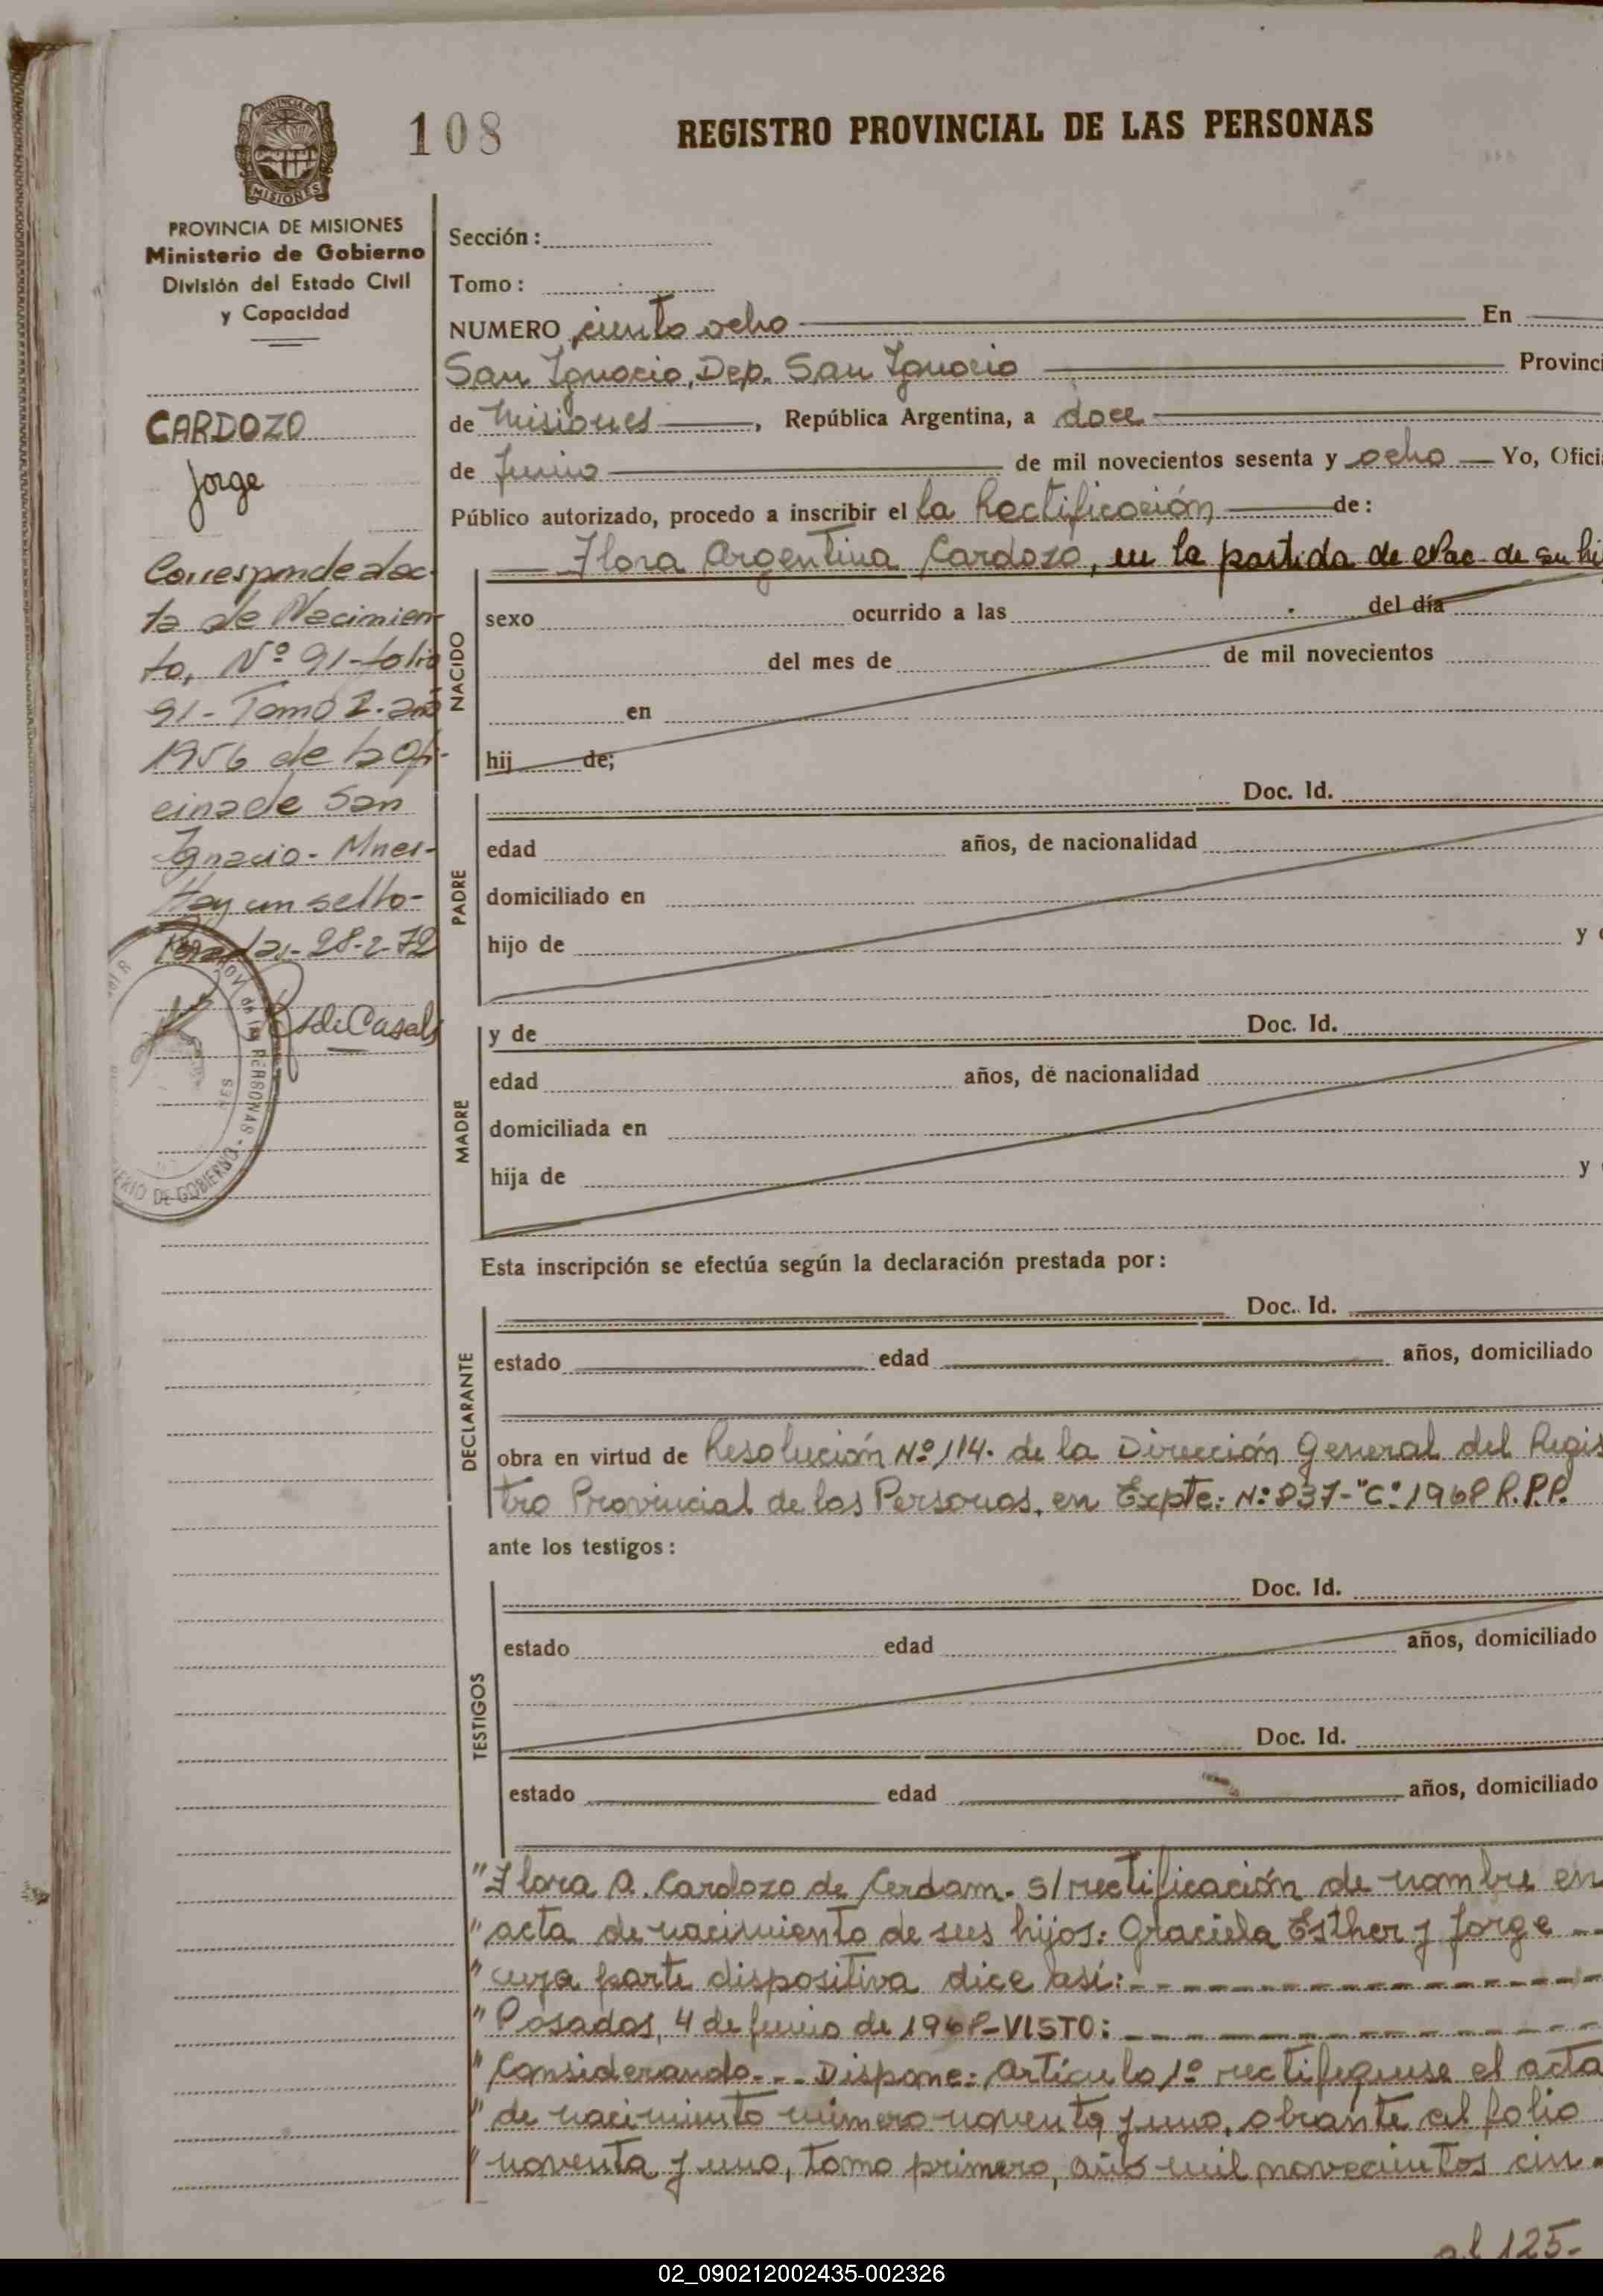 PROVINCIA DE
MISIONES
108
REGISTRO PROVINCIAL DE LAS PERSONAS
PROVINCIA DE MISIONES
Ministerio de Gobierno
División del Estado Civil
y Capacidad
CARDOZO
Jorge
Corresponde al ac-
ta de Nacimien-
to, Nº 91-folio
91-Tomo I-año
1956 de la Ofi-
cina de San
Ignacio-Mnes-
Hay un sello-
Posadas-28-2-72
de Casals
PERSONAS
DE GOBIERNO
Sección:
Tomo:
NUMERO ciento ocho En
San Ignacio, Dep. San Ignacio Provinci
de Misiones, República Argentina, a doce
de Junio de mil novecientos sesenta y ocho Yo, Ofici
Público autorizado, procedo a inscribir el la Rectificación de:
Flora Argentina Cardozo, en la partida de Nac. de su hi
NACIDO
sexo ocurrido a las del día
del mes de de mil novecientos
en
hij de;
PADRE
Doc. Id.
edad años, de nacionalidad
domiciliado en
hijo de y
MADRE
y de Doc. Id.
edad años, de nacionalidad
domiciliada en
hija de y
Esta inscripción se efectúa según la declaración prestada por:
DECLARANTE
Doc. Id.
estado edad años, domiciliado
obra en virtud de Resolución Nº 114. de la Dirección General del Regis
tro Provincial de las Personas, en Expte: Nº 837-"C" 1968 R.P.P.
ante los testigos:
TESTIGOS
Doc. Id.
estado edad años, domiciliado
Doc. Id.
estado edad años, domiciliado
"Flora A. Cardozo de Cerdam. S/ rectificación de nombre en
"acta de nacimiento de sus hijos: Graciela Esther y Jorge --
"cuya parte dispositiva dice así:---
"Posadas, 4 de junio de 1968-VISTO:---
"Considerando--- Dispone: Artículo 1º rectifíquese el acta
"de nacimiento número noventa y uno, obrante al folio
"noventa y uno, tomo primero, año mil novecientos cin-
al 125-
02_090212002435-002326